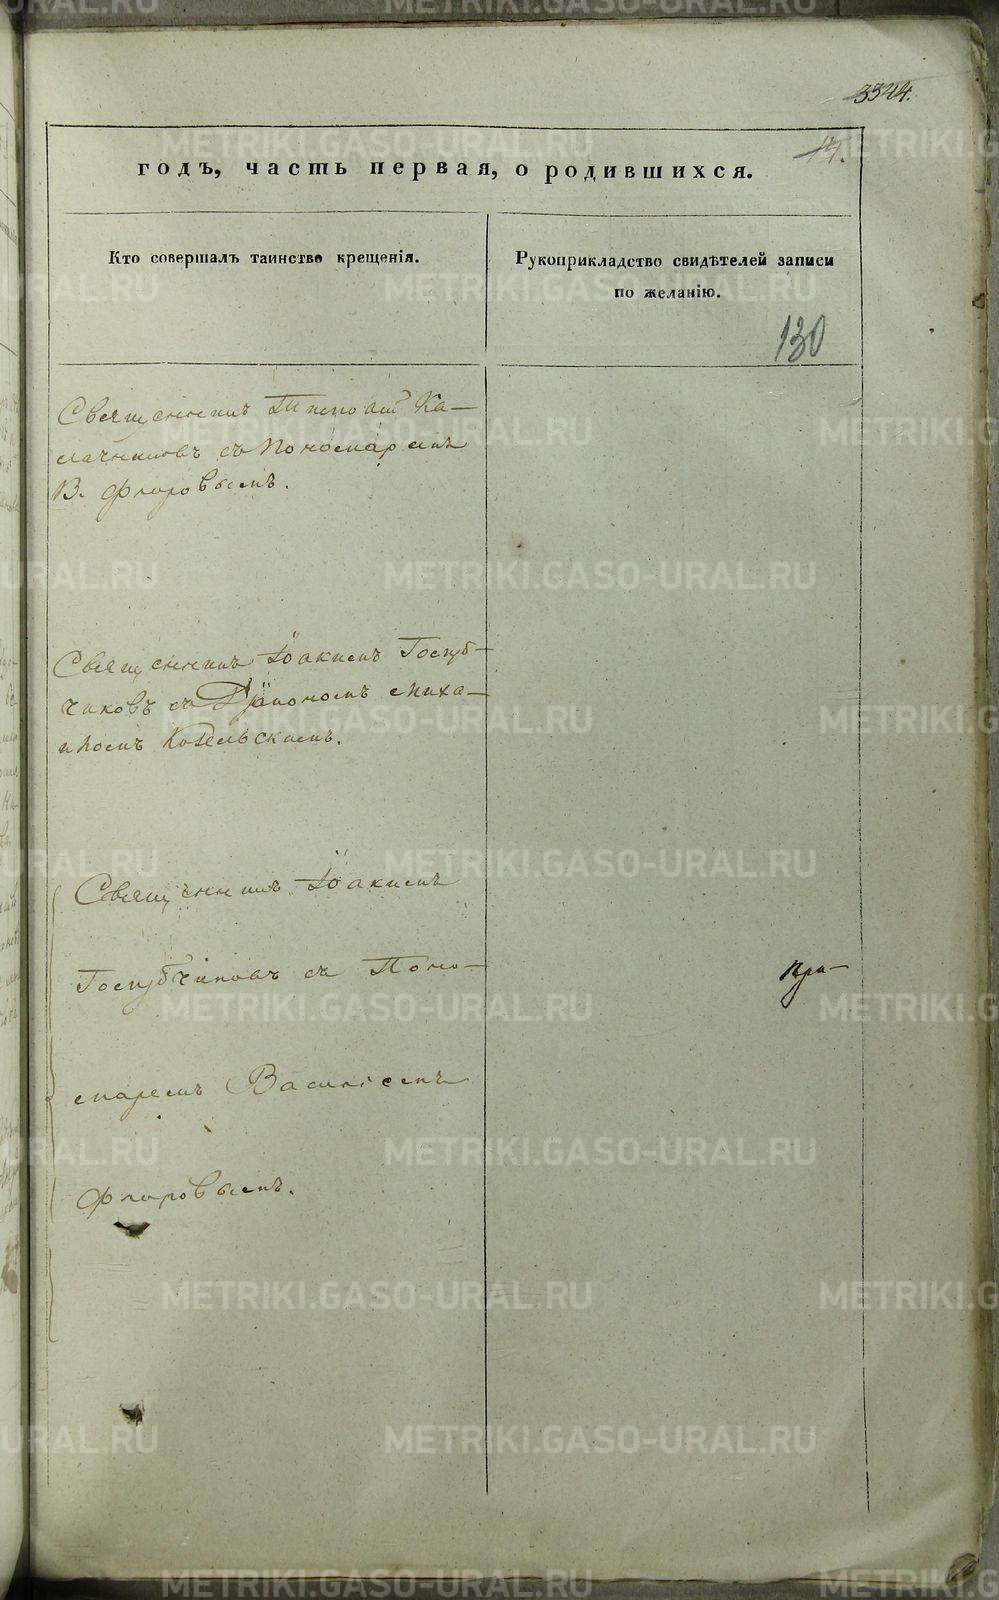 3344.
14.
годъ, часть первая, о родившихся.
Кто совершалъ таинство крещенія.
Рукоприкладство свидѣтелей записи
по желанію.
130
Священникъ Ка-
лачниковъ съ Пономаремъ
В. Флоровымъ.
Священникъ Іоакимъ Голуб-
чиковъ съ Діакономъ Миха-
иломъ Козельскимъ.
Священникъ Іоакимъ
Голубчиковъ съ Поно-
маремъ Василіемъ
Флоровымъ.
при-
METRIKI.GASO-URAL.RU